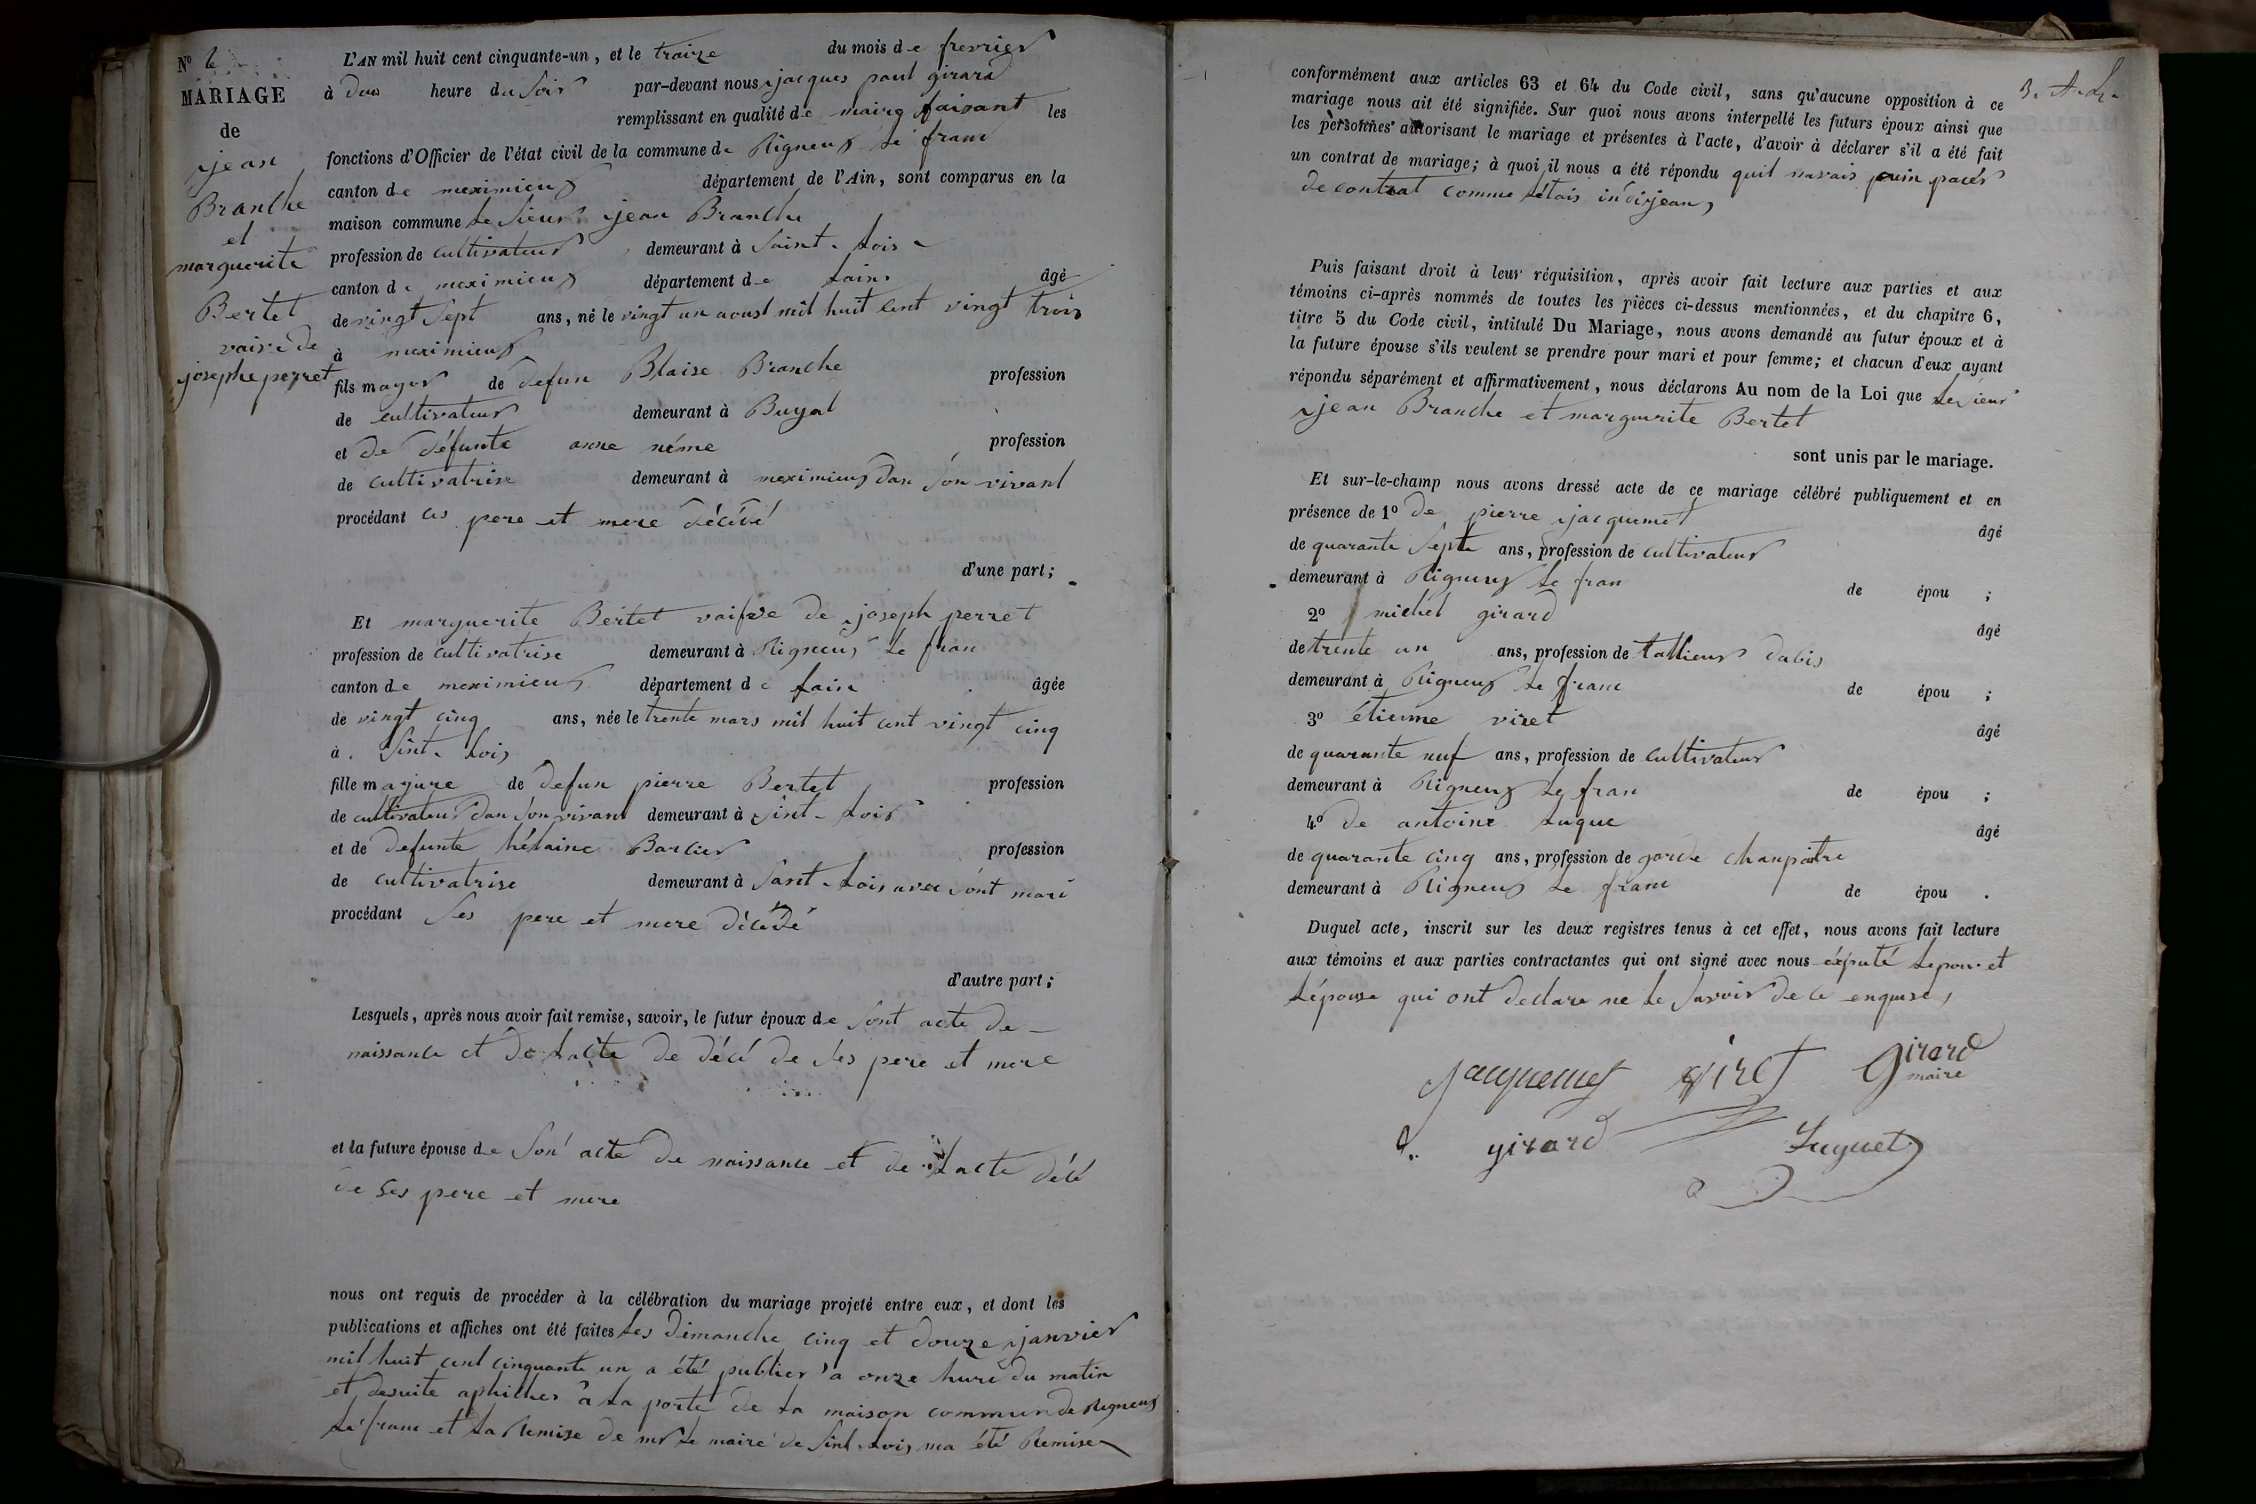 N° 2
MARIAGE
de
jean
Branche
et
marguerite
Bertet
vaive de
josephe perret
L'AN mil huit cent cinquante-un, et le traize du mois de frevrier
à deus heure du soir par-devant nous jacques paul girard
remplissant en qualité de maire faisant les
fonctions d'Officier de l'état civil de la commune de Rigneux le franc
canton de meximieux département de l'Ain, sont comparus en la
maison commune le sieur jean Branche
profession de cultivateur demeurant à Saint-Lois
canton de meximieux département de Lain âgé
de vingt sept ans, né le vingt un aoust mil huit cent vingt trois
à meximieux
fils mayor de defun Blaise Branche profession
de cultivateur demeurant à Buyat
et de défunte anne néme profession
de cultivatrise demeurant à meximieux dan son vivant
procédant ces pere et mere décédé
d'une part;
Et marguerite Bertet vaifve de joseph perret
profession de cultivatrise demeurant à Rigneux le fran
canton de meximieux département de lain âgée
de vingt cinq ans, née le trente mars mil huit cent vingt cinq
à Sint-Lois
fille majure de defun pierre Bertet profession
de cultivateur dan son vivant demeurant à Sint-Lois
et de defunte hélaine Barlier profession
de cultivatrise demeurant à Saint-Lois avec sont mari
procédant ses pere et mere décédé
d'autre part;
Lesquels, après nous avoir fait remise, savoir, le futur époux de sont acte de
naissance et de lacte de décé de ses pere et mere
et la future épouse de son acte de naissance et de lacte décé
de ses pere et mere
nous ont requis de procéder à la célébration du mariage projeté entre eux, et dont les
publications et affiches ont été faites les dimanche cinq et douze janvier
mil huit cent cinquante un a été publier a onze hure du matin
et desuite aphicher à la porte de la maison commun de Rigneux
le franc et la Remise de mr le maire de Sint-Lois ma été Remise
conformément aux articles 63 et 64 du Code civil, sans qu'aucune opposition à ce
mariage nous ait été signifiée. Sur quoi nous avons interpellé les futurs époux ainsi que
les personnes autorisant le mariage et présentes à l'acte, d'avoir à déclarer s'il a été fait
un contrat de mariage; à quoi il nous a été répondu quil navais puin pacér
de contrat comme létais indijean,
Puis faisant droit à leur réquisition, après avoir fait lecture aux parties et aux
témoins ci-après nommés de toutes les pièces ci-dessus mentionnées, et du chapitre 6,
titre 5 du Code civil, intitulé Du Mariage, nous avons demandé au futur époux et à
la future épouse s'ils veulent se prendre pour mari et pour femme; et chacun d'eux ayant
répondu séparément et affirmativement, nous déclarons Au nom de la Loi que le sieur
jean Branche et marguerite Bertet
sont unis par le mariage.
Et sur-le-champ nous avons dressé acte de ce mariage célébré publiquement et en
présence de 1° de pierre jacquemet âgé
de quarante septe ans, profession de cultivateur
demeurant à Rigneux le fran de épou ;
2° michel girard âgé
de trente un ans, profession de tallieur dabis
demeurant à Rigneux le franc de épou ;
3° étienne viret âgé
de quarante neuf ans, profession de cultivateur
demeurant à Rigneux le fran de épou ;
4° de antoine luque âgé
de quarante cinq ans, profession de garde chanpatre
demeurant à Rigneux le franc de épou .
Duquel acte, inscrit sur les deux registres tenus à cet effet, nous avons fait lecture
aux témoins et aux parties contractantes qui ont signé avec nous éxputé lepou et
lépouse qui ont declare ne le savoir de ce enquise,
Jacquemet viret Girard
maire
girard Luguet